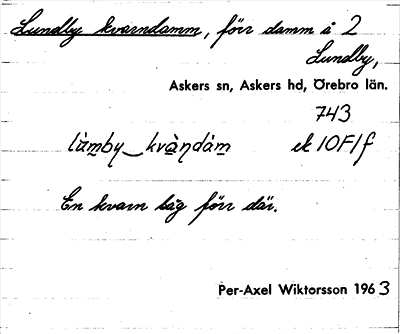 Lundby kvarndamm, förr damm å 2
Lundby,
Askers sn, Askers hd, Örebro län.
743
làmby_kvàṇdàm ek 10F1f
En kvarn låg förr där.
Per-Axel Wiktorsson 1963